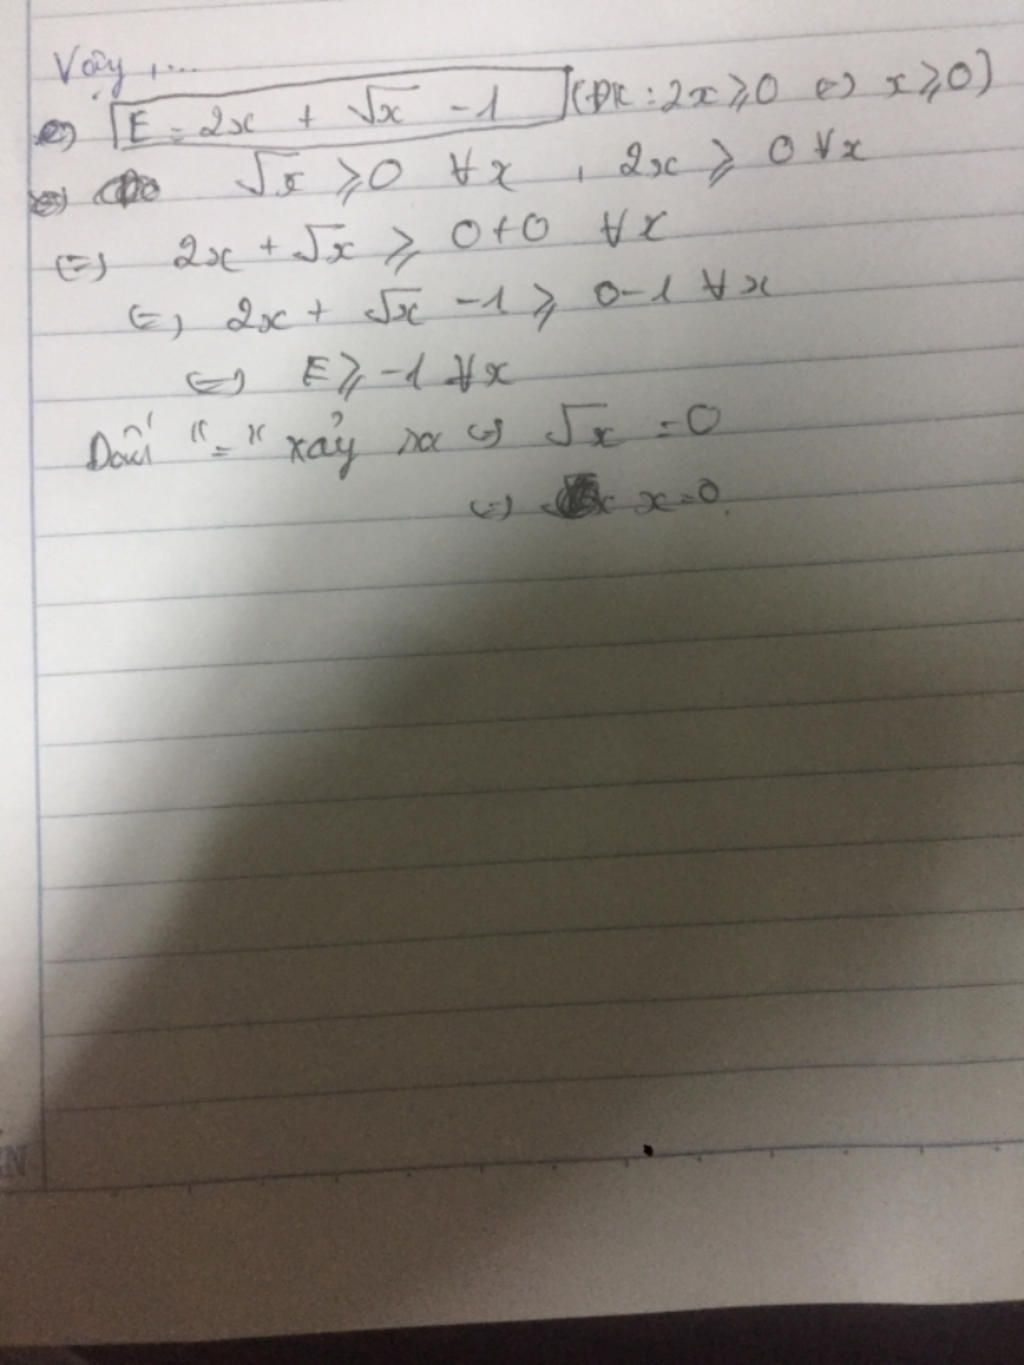 Vậy,...
e) E = 2x + √x - 1 (ĐK: 2x ≥ 0 ⇔ x ≥ 0)
⇔ √x ≥ 0 ∀x , 2x ≥ 0 ∀x
⇔ 2x + √x ≥ 0+0 ∀x
⇔ 2x + √x - 1 ≥ 0-1 ∀x
⇔ E ≥ -1 ∀x
Dấu "=" xảy ra ⇔ √x = 0
⇔ x=0.
EN